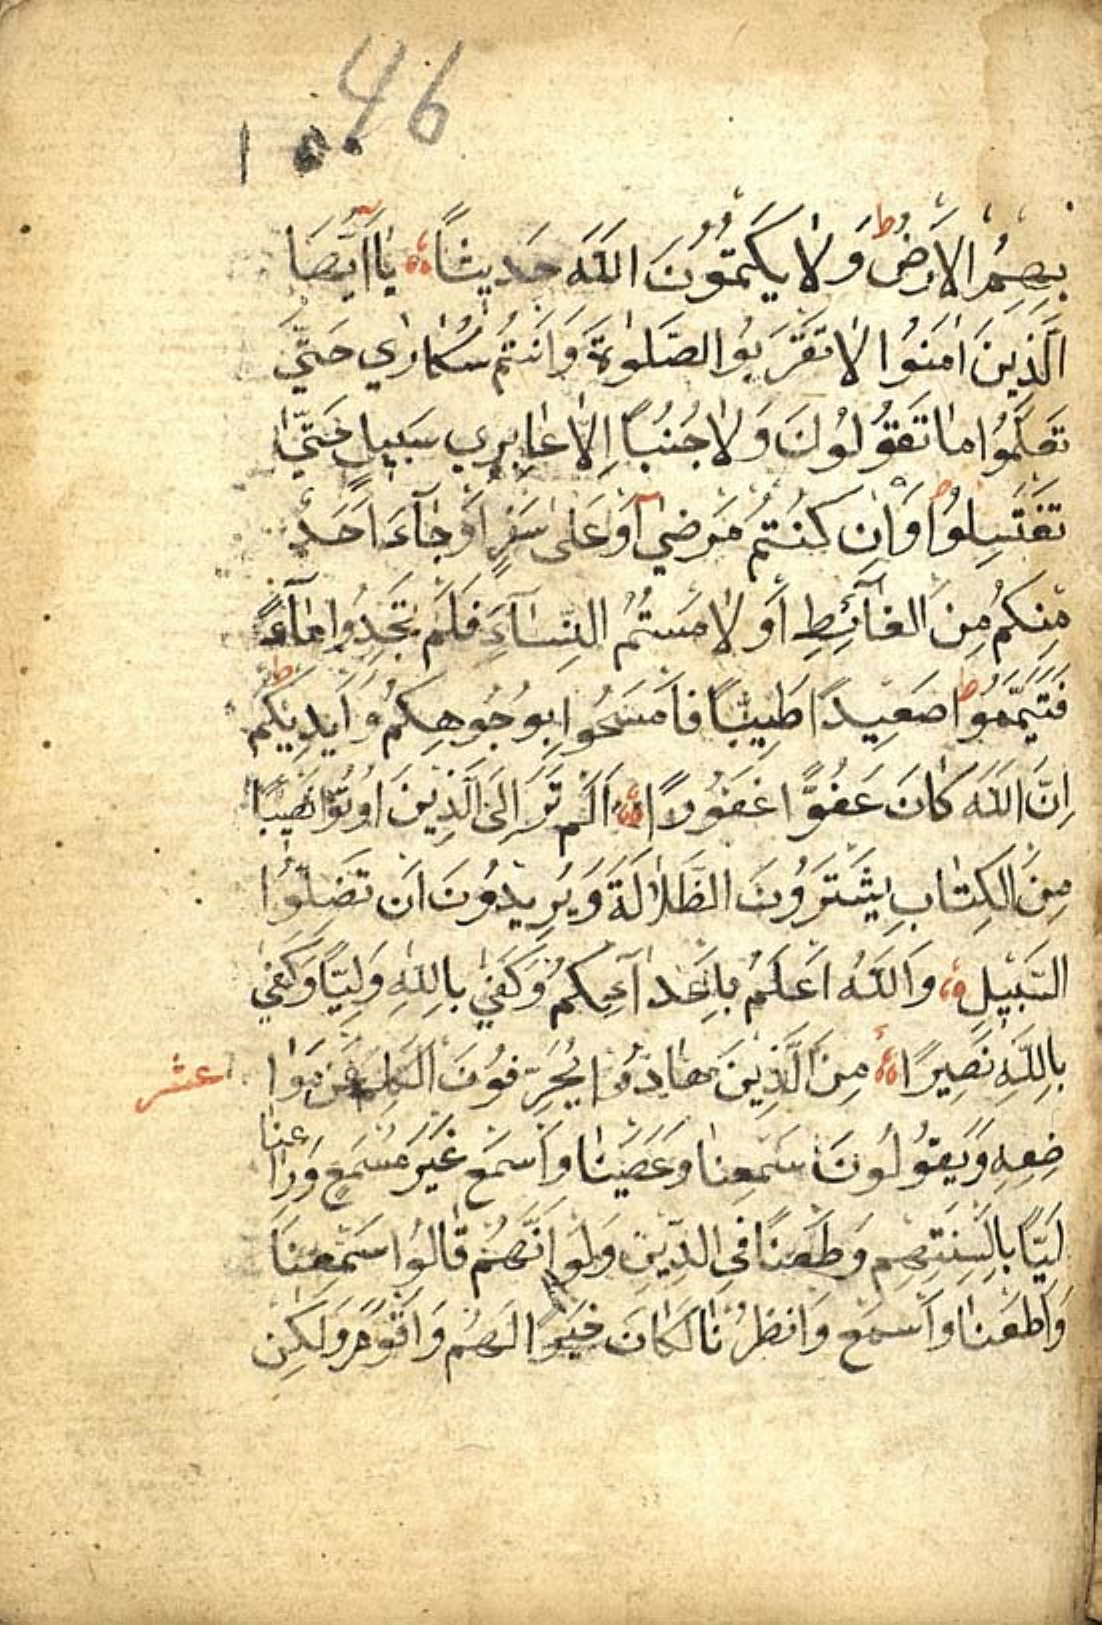 46
١٠٠
بِهِمُ الْاَرْضُ ط وَلَا يَكْتُمُونَ اللّٰهَ حَدِيثًا يَاآاَيُّهَا
الَّذِينَ اٰمَنُوا لَا تَقْرَبُوا الصَّلٰوةَ وَاَنْتُمْ سُكَارٰي حَتّٰي
تَعْلَمُوا مَا تَقُولُونَ وَلَا جُنُبًا اِلَّا عَابِرِي سَبِيلٍ حَتّٰي
تَغْتَسِلُوا ط وَاِنْ كُنْتُمْ مَرْضٰي اَوْ عَلٰي سَفَرٍ اَوْ جَآءَ اَحَدٌ
مِنْكُمْ مِنَ الْغَآئِطِ اَوْ لَامَسْتُمُ النِّسَآءَ فَلَمْ تَجِدُوا مَآءً
فَتَيَمَّمُوا ط صَعِيدًا طَيِّبًا فَامْسَحُوا بِوُجُوهِكُمْ وَاَيْدِيكُمْ ط
اِنَّ اللّٰهَ كَانَ عَفُوًّا غَفُورًا اَلَمْ تَرَ اِلَي الَّذِينَ اُوتُوا نَصِيبًا
مِنَ الْكِتَابِ يَشْتَرُونَ الظَّلَالَةَ وَيُرِيدُونَ اَنْ تَضِلُّوا
السَّبِيلِ وَاللّٰهُ اَعْلَمُ بِاَعْدَآئِكُمْ وَكَفٰي بِاللّٰهِ وَلِيًّا وَكَفٰي
بِاللّٰهِ نَصِيرًا مِنَ الَّذِينَ هَادُوا يُحَرِّفُونَ الْكَلِمَ عَنْ مَوَا
عشر
ضِعِهِ وَيَقُولُونَ سَمِعْنَا وَعَصَيْنَا وَاسْمَعْ غَيْرَ مُسْمَعٍ وَرَاعِنَا
لَيًّا بِاَلْسِنَتِهِمْ وَطَعْنًا فِي الدِّينِ وَلَوْ اَنَّهُمْ قَالُوا سَمِعْنَا
وَاَطَعْنَا وَاسْمَعْ وَانْظُرْنَا لَكَانَ خَيْرًا لَهُمْ وَاَقْوَمَ وَلٰكِنْ